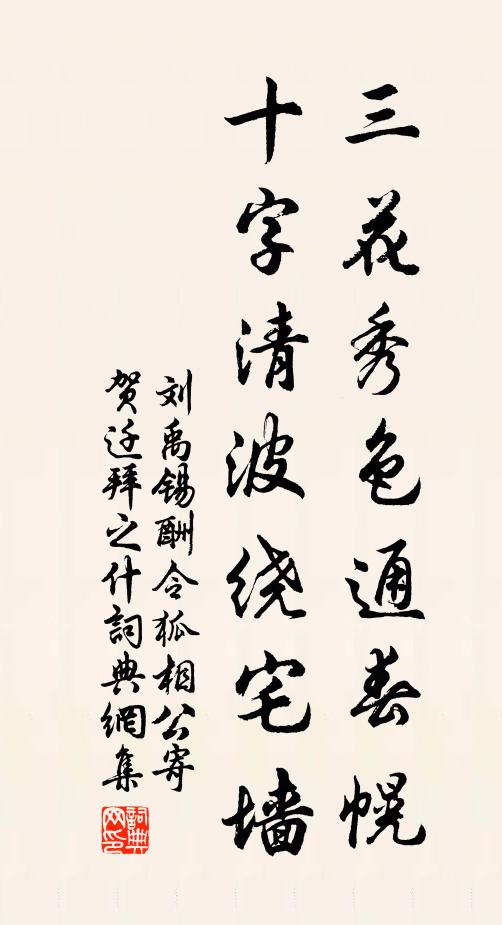 三花秀色通春幌
十字清波绕宅墙
刘禹锡酬令狐相公寄
贺迁拜之什詞典網集
詞典
网印